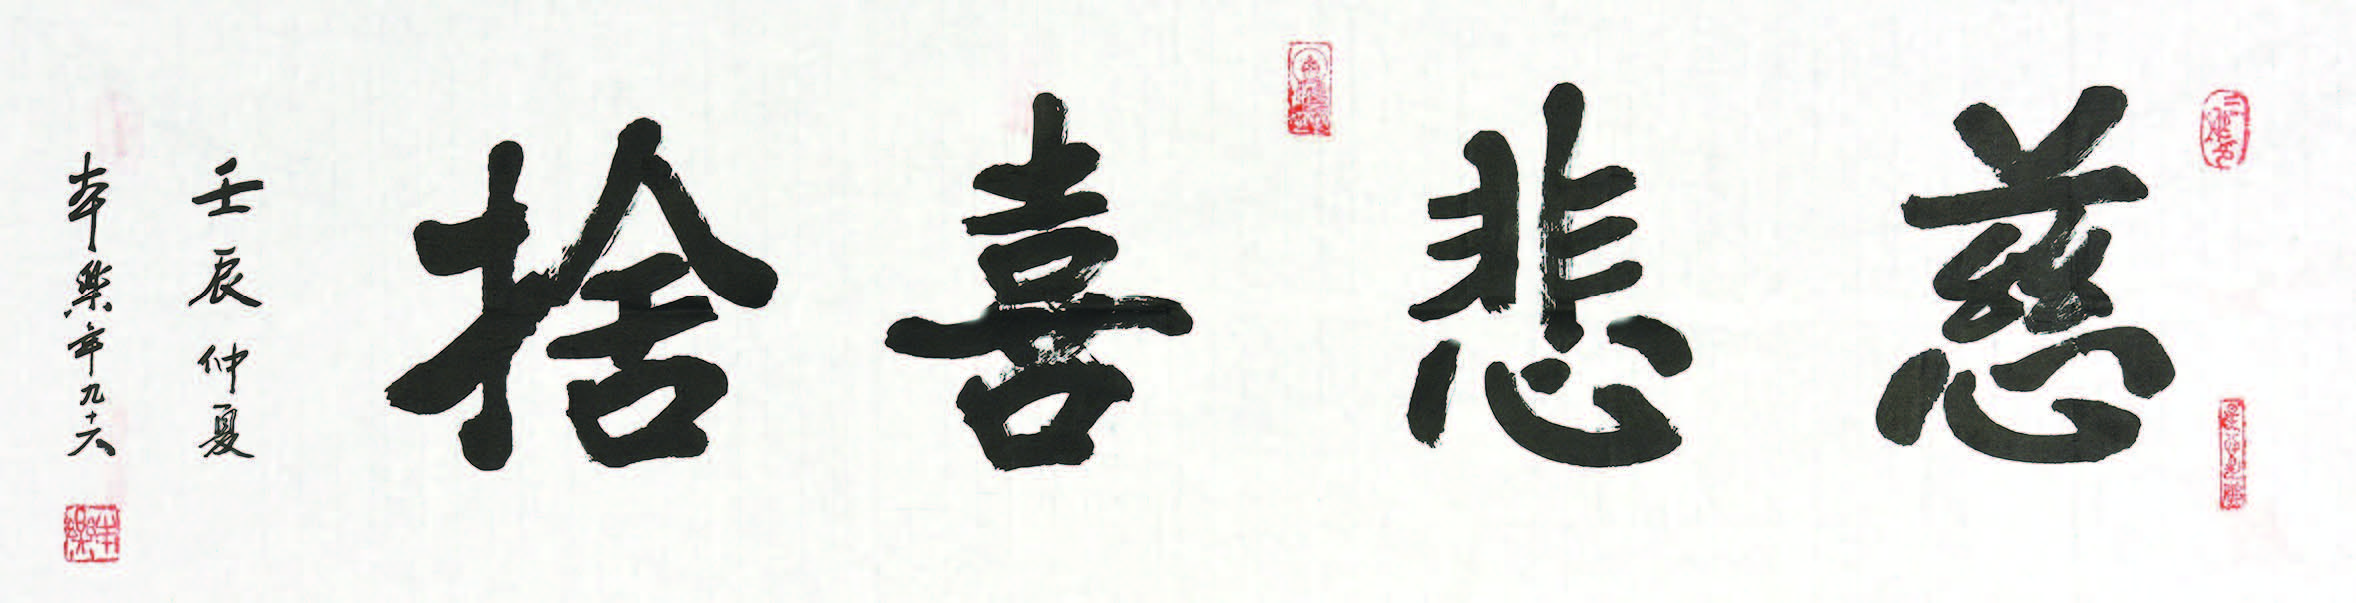 慈悲喜捨
壬辰仲夏
本樂年九十六